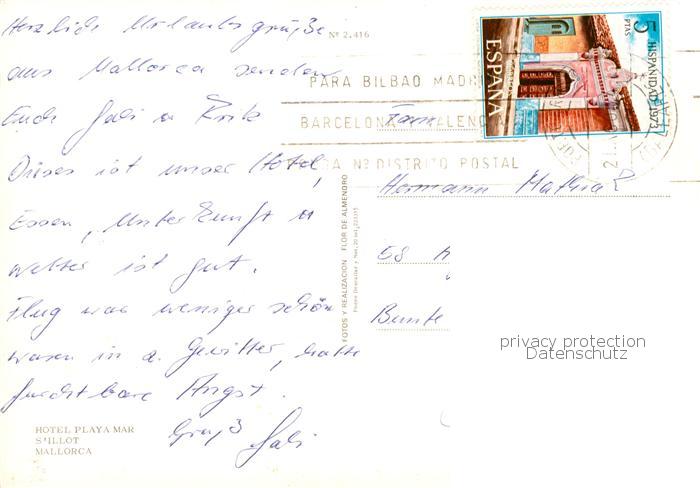 Herzliche Urlaubsgrüße
aus Mallorca senden
Euch Gabi u
Dieses ist unser Hotel,
Essen, Unterkunft u
Wetter ist gut.
Flug war weniger schön
waren in a. Gewitter, hatte
furchtbare Angst.
Gruß Gabi
HOTEL PLAYA MAR
S'ILLOT
MALLORCA
Nº 2.416
FOTOS Y REALIZACION FLOR DE ALMENDRO
PARA BILBAO MADR
BARCELONA VALENCIA
Nº DISTRITO POSTAL
5 PTAS
HISPANIDAD 1973
ESPAÑA
Fam
Hermann
58
Bunte
privacy protection
Datenschutz